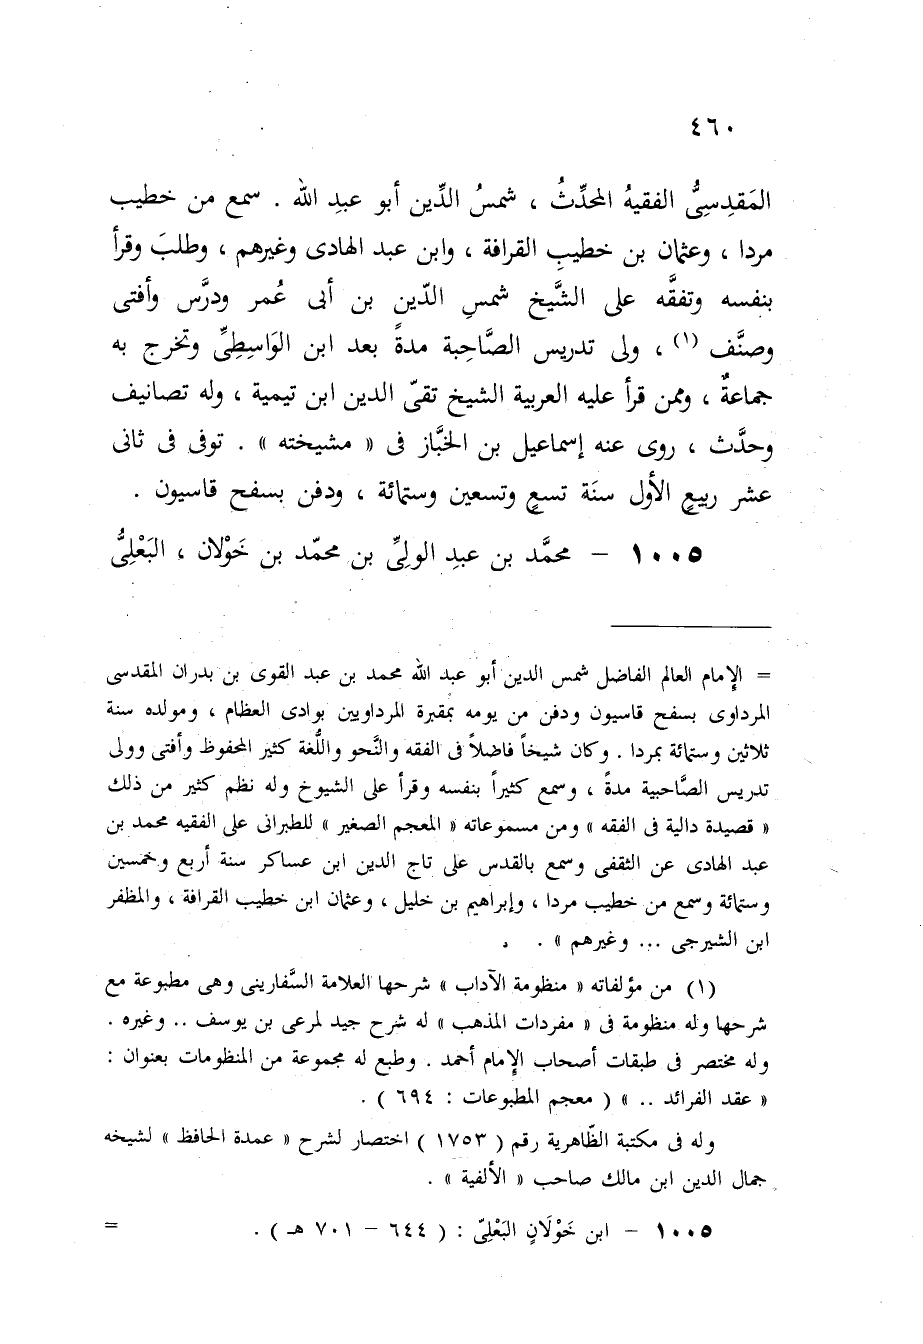 ٤٦٠
المَقدِسِىُّ الفقيهُ المحدِّثُ ، شمسُ الدِّين أبو عبدِ الله . سمع من خطيب
مردا ، وعثمان بن خطيبِ القرافة ، وابن عبد الهادى وغيرهم ، وطلبَ وقرأَ
بنفسه وتفقَّه على الشَّيخ شمسِ الدّين بن أبى عُمر ودرَّس وأفتى
وصنَّف (١) ، ولى تدريس الصَّاحبة مدةً بعد ابن الوَاسِطِىِّ وتخرج به
جماعةٌ ، وممن قرأ عليه العربية الشيخ تقىّ الدين ابن تيمية ، وله تصانيف
وحدَّث ، روى عنه إسماعيل بن الخبَّاز فى « مشيخته » . توفى فى ثانى
عشر ربيعٍ الأول سنَة تسعٍ وتسعين وستمائة ، ودفن بسفح قاسيون .
١٠٠٥ – محمَّد بن عبدِ الولِىِّ بن محمّد بن خَوْلان ، البَعْلِىُّ
= الإمام العالم الفاضل شمس الدين أبو عبد الله محمد بن عبد القوى بن بدران المقدسى
المرداوى بسفح قاسيون ودفن من يومه بمقبرة المرداويين بوادى العظام ، ومولده سنة
ثلاثين وستمائة بمردا . وكان شيخاً فاضلاً فى الفقه والنَّحو واللُّغة كثير المحفوظ وأفتى وولى
تدريس الصَّاحبية مدةً ، وسمع كثيراً بنفسه وقرأ على الشيوخ وله نظم كثير من ذلك
« قصيدة دالية فى الفقه » ومن مسموعاته « المعجم الصغير » للطبرانى على الفقيه محمد بن
عبد الهادى عن الثقفى وسمع بالقدس على تاج الدين ابن عساكر سنة أربع وخمسين
وستمائة وسمع من خطيب مردا ، وإبراهيم بن خليل ، وعثمان ابن خطيب القرافة ، والمظفر
ابن الشيرجى ... وغيرهم » .
(١) من مؤلفاته « منظومة الآداب » شرحها العلامة السَّفارينى وهى مطبوعة مع
شرحها وله منظومة فى « مفردات المذهب » له شرح جيد لمرعى بن يوسف .. وغيره .
وله مختصر فى طبقات أصحاب الإمام أحمد . وطبع له مجموعة من المنظومات بعنوان :
« عقد الفرائد .. » ( معجم المطبوعات : ٦٩٤ ) .
وله فى مكتبة الظّاهرية رقم ( ١٧٥٣ ) اختصار لشرح « عمدة الحافظ » لشيخه
جمال الدين ابن مالك صاحب « الألفية » .
١٠٠٥ – ابن خَوْلَانٍ البَعْلِىّ : ( ٦٤٤ – ٧٠١ هـ ) . =